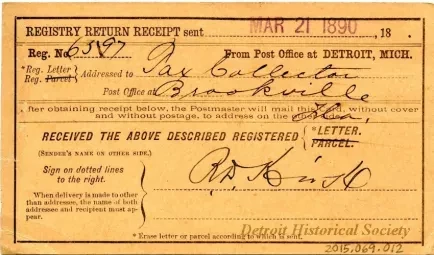 REGISTRY RETURN RECEIPT sent MAR 21 1890, 18 .
Reg. No. 6597 From Post Office at DETROIT, MICH.
*Reg. Letter } Addressed to Tax Collector
Reg. Parcel
Post Office at Brookville
After obtaining receipt below, the Postmaster will mail this Card, without cover
and without postage, to address on the other side.
RECEIVED THE ABOVE DESCRIBED REGISTERED { *LETTER.
PARCEL.
(SENDER'S NAME ON OTHER SIDE.)
Sign on dotted lines
to the right.
When delivery is made to other
than addressee, the name of both
addressee and recipient must ap-
pear.
* Erase letter or parcel according to which is sent.
Detroit Historical Society
2015.069.012